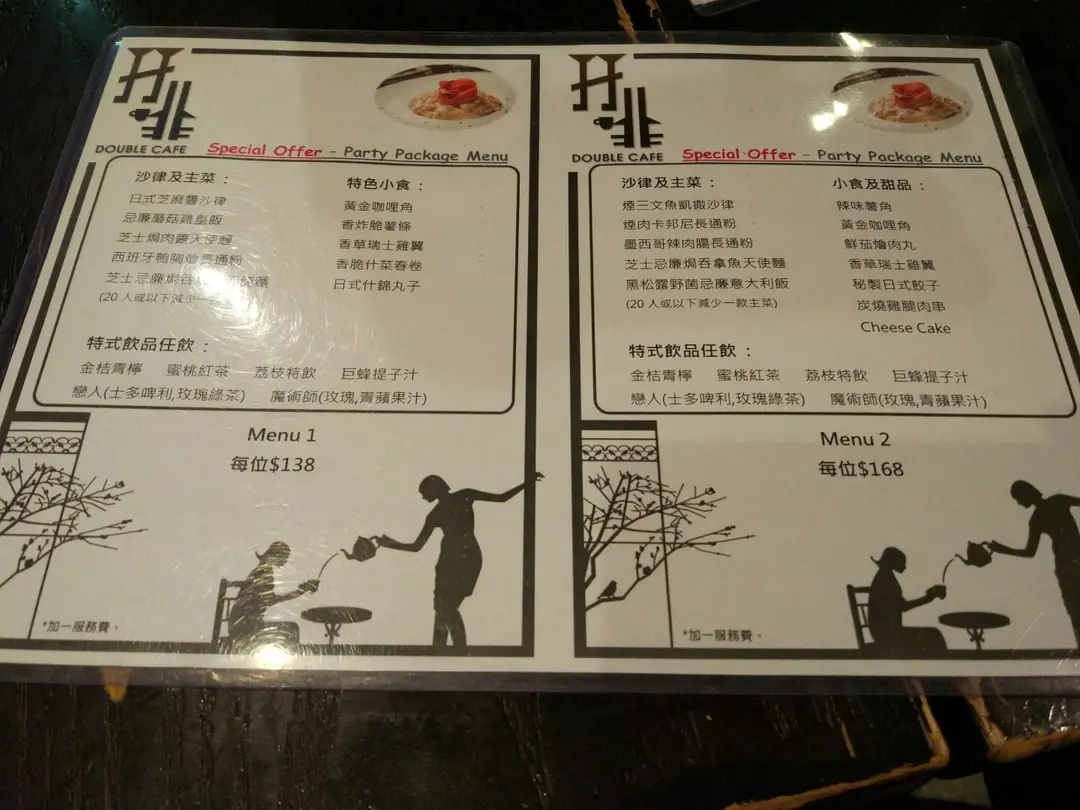 DOUBLE CAFE
Special Offer - Party Package Menu
沙律及主菜：
日式芝麻醬沙律
忌廉蘑菇雞皇飯
芝士焗肉醬天使麵
西班牙鴨胸 長通粉
芝士忌廉焗吞
(20 人或以下減少一款主菜)
特色小食：
黃金咖哩角
香炸脆薯條
香草瑞士雞翼
香脆什菜春卷
日式什錦丸子
特式飲品任飲：
金桔青檸 蜜桃紅茶 荔枝特飲 巨蜂提子汁
戀人(士多啤利,玫瑰綠茶) 魔術師(玫瑰,青蘋果汁)
Menu 1
每位$138
*加一服務費。
DOUBLE CAFE
Special Offer - Party Package Menu
沙律及主菜：
煙三文魚凱撒沙律
煙肉卡邦尼長通粉
墨西哥辣肉腸長通粉
芝士忌廉焗吞拿魚天使麵
黑松露野菌忌廉意大利飯
(20 人或以下減少一款主菜)
小食及甜品：
辣味薯角
黃金咖哩角
鮮茄燴肉丸
香草瑞士雞翼
秘製日式餃子
炭燒雞腿肉串
Cheese Cake
特式飲品任飲：
金桔青檸 蜜桃紅茶 荔枝特飲 巨蜂提子汁
戀人(士多啤利,玫瑰綠茶) 魔術師(玫瑰,青蘋果汁)
Menu 2
每位$168
*加一服務費。